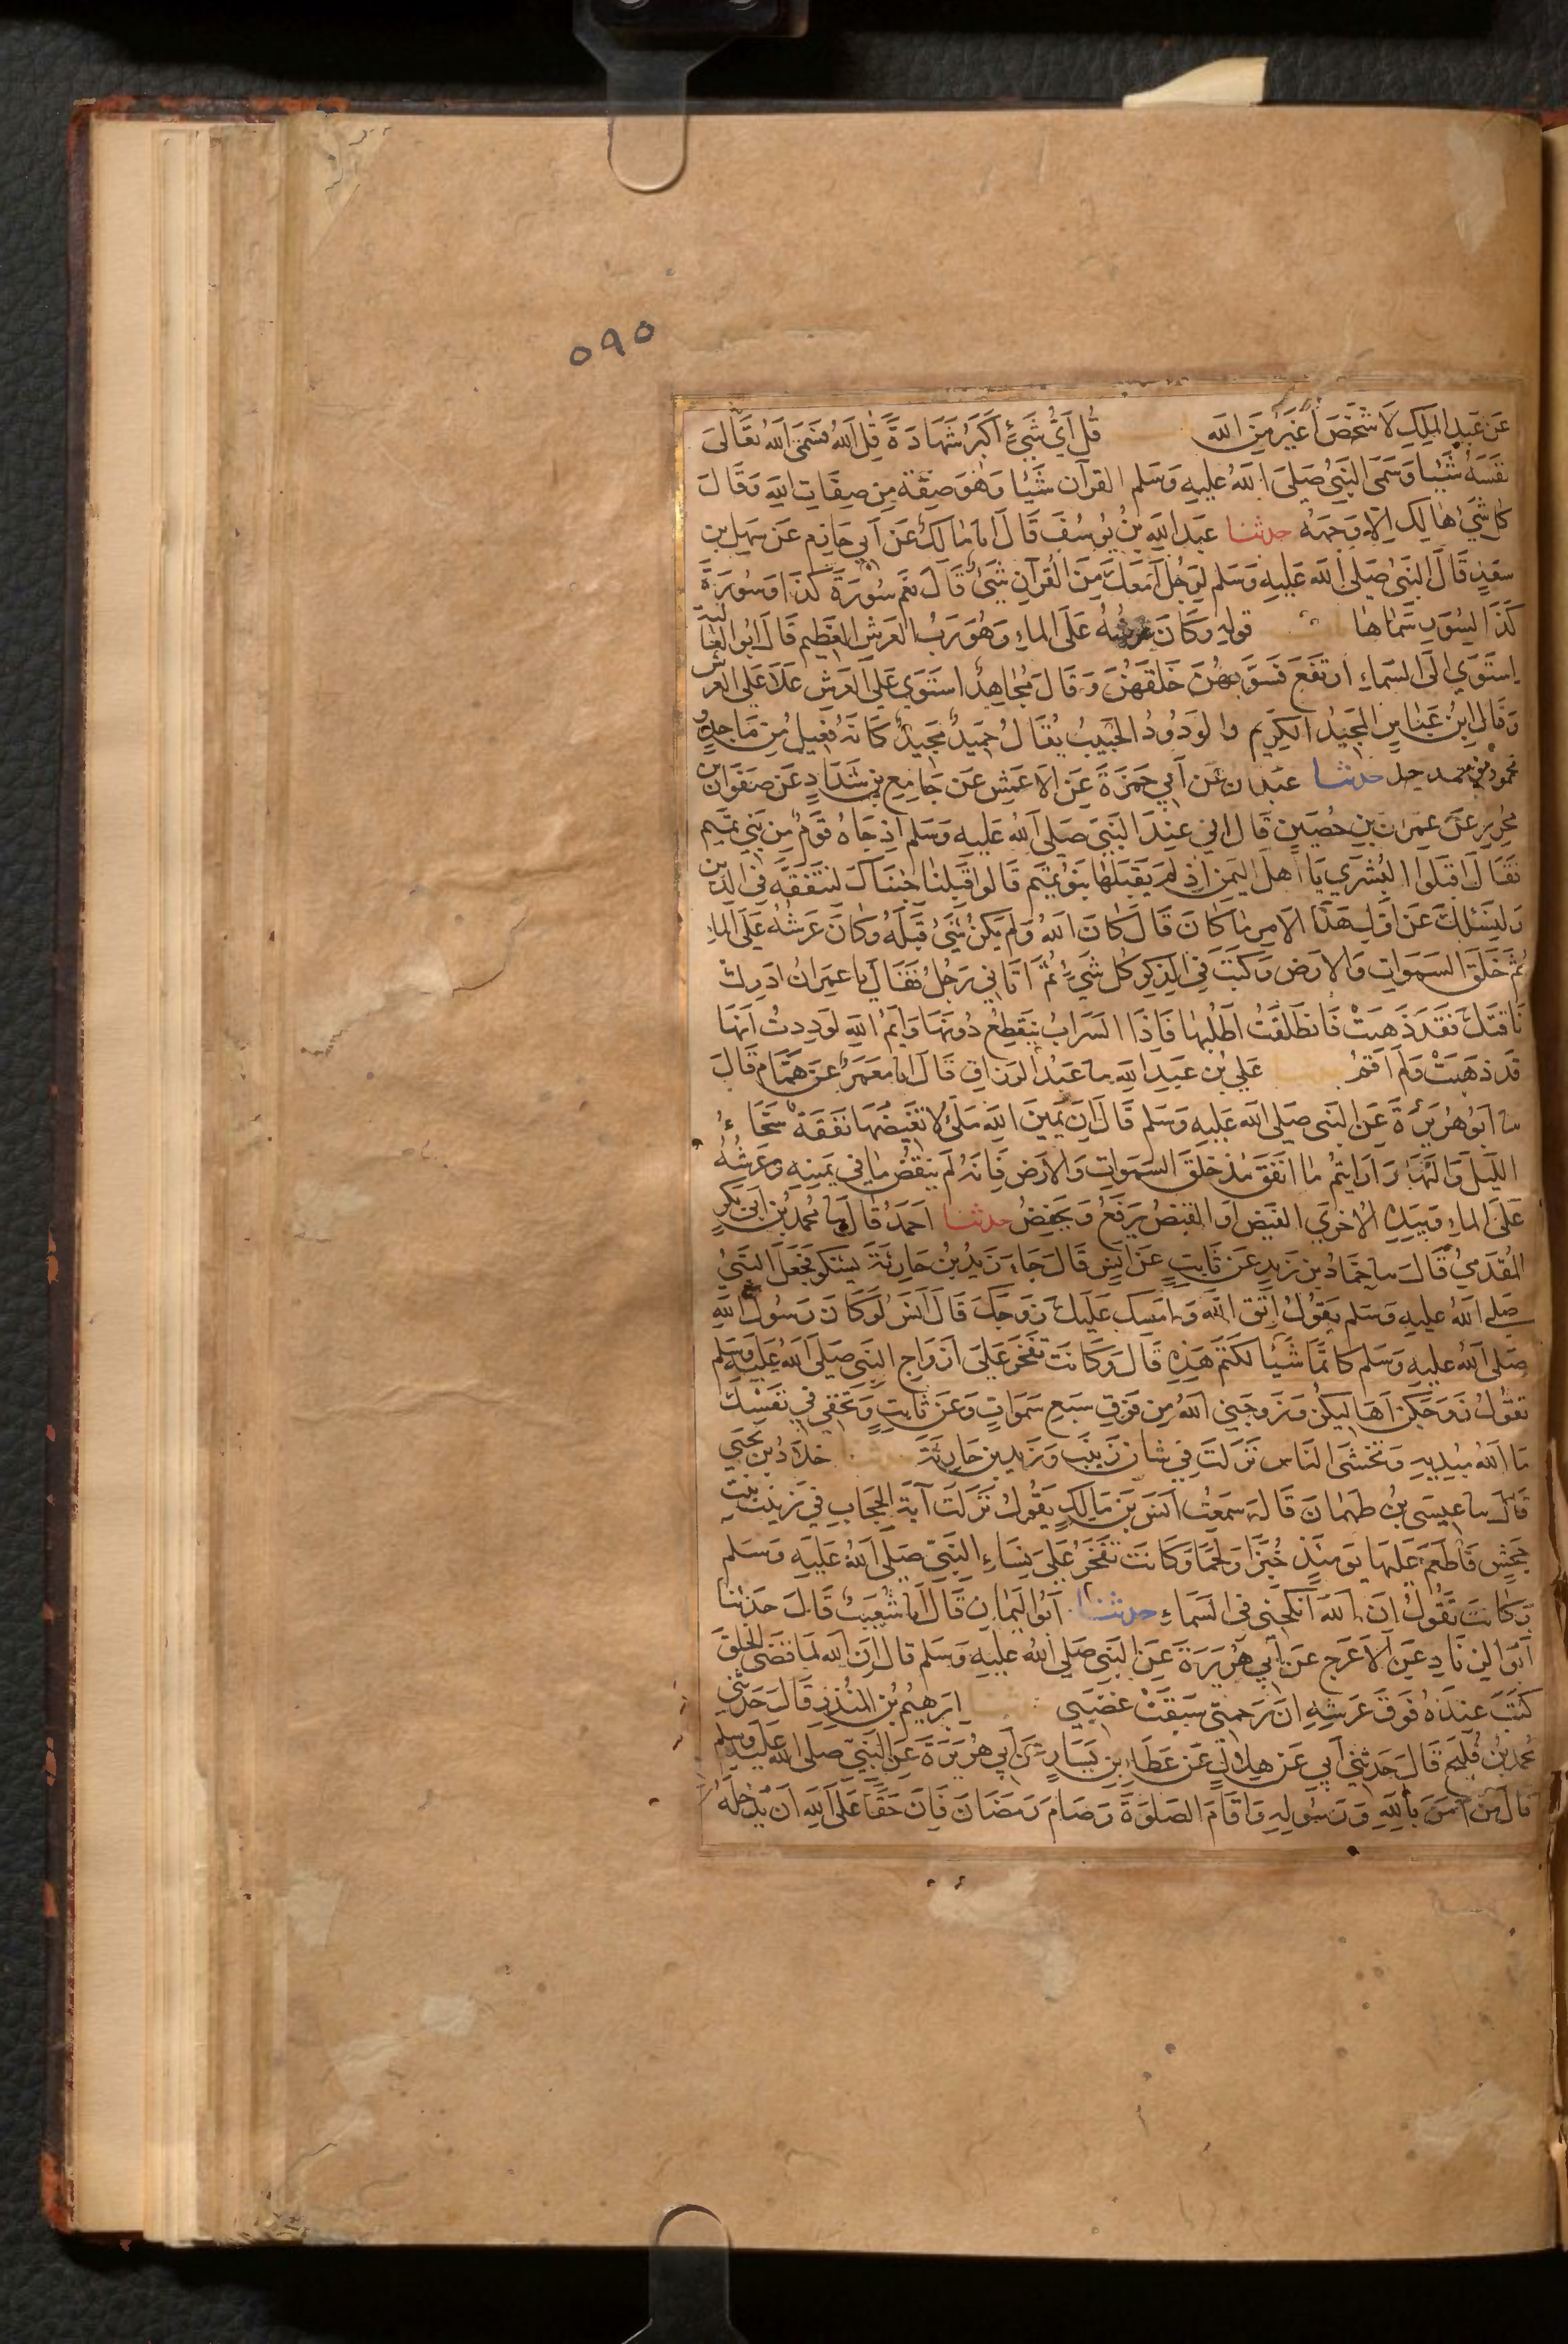 ٥٩٥
عَن عَبدِ الملِكِ لَا شَخْصَ اَغْيَرُ مِنَ الله قُل اَيُّ شَيْءٍ اَكبَرُ شَهَادَةً قُلِ اللهُ فسَمَى اللهُ تعَالَى
نفسَهُ شَيْئا وَسَمَى النَبِيُ صَلى اللهُ عليهِ وَسَلم القرآن شَيْئا وَهُوَ صِفَة مِن صِفَاتِ اللهِ وَقَالَ
كل شيء هَالِك اِلا وَجهَهُ حدثنا عبد اللهِ بنُ يُوسُفَ قَالَ انا مَالكٌ عَن اَبي حَازِم عَن سَهلِ بنِ
سعَدٍ قَالَ النَبيُ صَلى الله عَليهِ وَسَلم لِرَجُل اَمَعَكَ مِنَ القُرآنِ شَيْءٌ قَالَ نعَم سُورَةُ كذَا وَسُورَةُ
كَذَا لِسُوَرٍ سَمَاهَا قوله وَكَانَ عَرشُهُ عَلَى الماءِ وَهُوَ رَبُ العَرشِ العَظِيم قَالَ ابُو العَالية
اِستَوَي الَى السَماءِ ارتفَعَ فَسَوّيهُنَ خَلَقَهُنَ وَقَالَ مُجَاهِدٌ استَوَي عَلَى العَرش عَلَا عَلَى العَرش
وَقَالَ ابنُ عَبَاسٍ المجَيدُ الكَرِيم والوَدُودُ الحَبِيبُ يُقَالُ حَمِيدٌ مَجِيدٌ كَانَهُ فَعِيلٌ مِن مَاجِدٍ و
محمود من حمد حدثنا عبدان عَن اَبي حَمزَةَ عَنِ الاعمَش عَن جَامِعِ بنِ شَدَادٍ عَن صَفوَانَ بن
مُحْرِزٍ عَن عِمرَانَ بنِ حُصَينٍ قَالَ اِنى عِنْدَ النَبيّ صَلى اللهُ عَليهِ وَسَلم اِذ جَاهُ قَومٌ مِن بَني تميم
فقَالَ اقبَلُوا البُشرَي يَا اَهلَ اليَمَن اِذ لَم يَقبَلهَا بَنُو تميَم قَالوا قَبِلنَا جئنَاكَ لنتَفَقَّه فِي الدِّين
وَلِنَسئَلكَ عَن اَوَّلِ هَذَا الامرِ مَا كَانَ قَالَ كَانَ اللهُ وَلَم يَكُن شَيْءٌ قَبلَهُ وَكَانَ عَرشُهُ عَلَى الماءِ
ثُمَّ خَلَقَ السَمَواتِ وَالارَض وَكَتَبَ فِي الذِكرِ كُلَ شَيْءٍ ثُمَّ اَتَانِي رَجُلٌ فقَالَ يا عِمرَانُ ادرِك
نَاقَتَكَ فقَد ذَهبَتْ فَانطَلَقتُ اَطْلُبُهَا فَاذَا السَرَابُ يَنقَطِعُ دُونهَا وَايمُ اللهِ لَودِدتُ اَنهَا
قَد ذهَبَتْ وَلَم اَقُم عَلي بن عَبدِ اللهِ سا عَبْدُ الرَزاقِ قَالَ انا مَعمَرٌ عَن هَمَّامٍ قَالَ
سا اَبُو هُرَيرَةَ عَن النَبى صَلى الله عَليهِ وَسَلم قَالَ اِنَ يَمِينَ اللهِ مَلئ لا تغَيضُهَا نَفَقَةٌ سَحَّاءُ
اللَيلَ وَالنَهَارَ اَرَايتُم مَا انفَقَ منذ خَلَقَ السَمَوات وَالارَض فَانهُ لَم ينقُص مَا فِي يَمِينِهِ وَعَرشُهُ
عَلَى الماءِ وَبِيَدِهِ الاخرَي الفَيضُ اَو القَبضُ يَرفَعُ وَيَخفِضُ حدثنا اَحمَدُ قَالَ سا مُحمدُ بنُ اَبى بَكرٍ
المُقَدَّمِيُّ قَالَ سا حَمَادُ بن زَيدٍ عَن ثَابِتٍ عَن اَنَسٍ قَالَ جَاءَ زَيدُ بنُ حَارِثَةَ يشكُو فجَعَلَ النَبيُ
صَلى اللهُ عليهِ وَسَلم يَقُولُ اتَّق اللهَ وَامسِك عَليكَ زَوجَكَ قَالَ اَنسٌ لَو كَانَ رَسُولُ اللهِ
صَلى اللهُ عليهِ وَسَلم كَاتمًا شَيْئا لكتَم هَذِهِ قَالَ وَكَانَت تفخَرُ عَلى اَزوَاجِ النَبِي صَلى اللهُ عَليهِ وَسَلم
تقُولُ زَوَجَكُنَّ اَهَاليكُن وَزَوجَنِي اللهُ مِن فَوقِ سَبعِ سَمَوَاتٍ وَعَن ثَابِتٍ وَتُخفِي فِي نَفسِكَ
مَا اللهُ مُبدِيهِ وَتَخشَى النَاسَ نزَلَت فِي شَان زَينَبَ وَزَيدِ بنِ حَارِثَةَ خَلَّادُ بن يحيَي
قَالَ سا عِيسَى بنُ طَهمَانَ قَالَ سَمِعْتُ اَنَسَ بنَ مَالِكٍ يَقُولُ نَزَلَت آيَةُ الحِجَابِ فِي زَينَب بنتِ
جَحشٍ فَاَطعَمَ عَلَيهَا يَومَئِذٍ خُبزًا وَلَحمًا وَكَانَت تَفخَرُ عَلى نِسَاءِ النَبيّ صَلى اللهُ عَليهِ وَسَلم
وَكَانَت تَقُولُ اِنَ اللهَ اَنكحَنِي فى السَماءِ حدثنا ابَوُ اليَمانِ قَالَ انا شُعَيبٌ قَالَ حَدَثنا
اَبوُ الزنَادِ عَنِ الاَعرَج عَن اَبي هُرَيرَةَ عَن النَبي صَلى اللهُ عليهِ وَسَلم قَالَ اِنَ اللهَ لمَا قضَى الخلقَ
كَتَبَ عندَهُ فوقَ عَرشِهِ اِنَ رَحمتى سَبَقَتْ غضَبِي اِبرَهِيمُ بنُ المنُذِرِ قَالَ حَدَثني
مُحمدُ بنُ فُليحٍ قَالَ حَدثنِي اَبي عَن هِلالٍ عَن عَطَاءِ بنِ يَسَارٍ عَن اَبي هُرَيرَةَ عَن النَبيّ صَلى اللهُ عليهِ وسلم
قالَ مَن آمَنَ بِاللهِ وَرَسُولِهِ وَاَقَامَ الصَلوةَ وَصَامَ رَمَضَانَ فَاِنَ حَقًا عَلَى اللهِ اَن يُدخِلَهُ